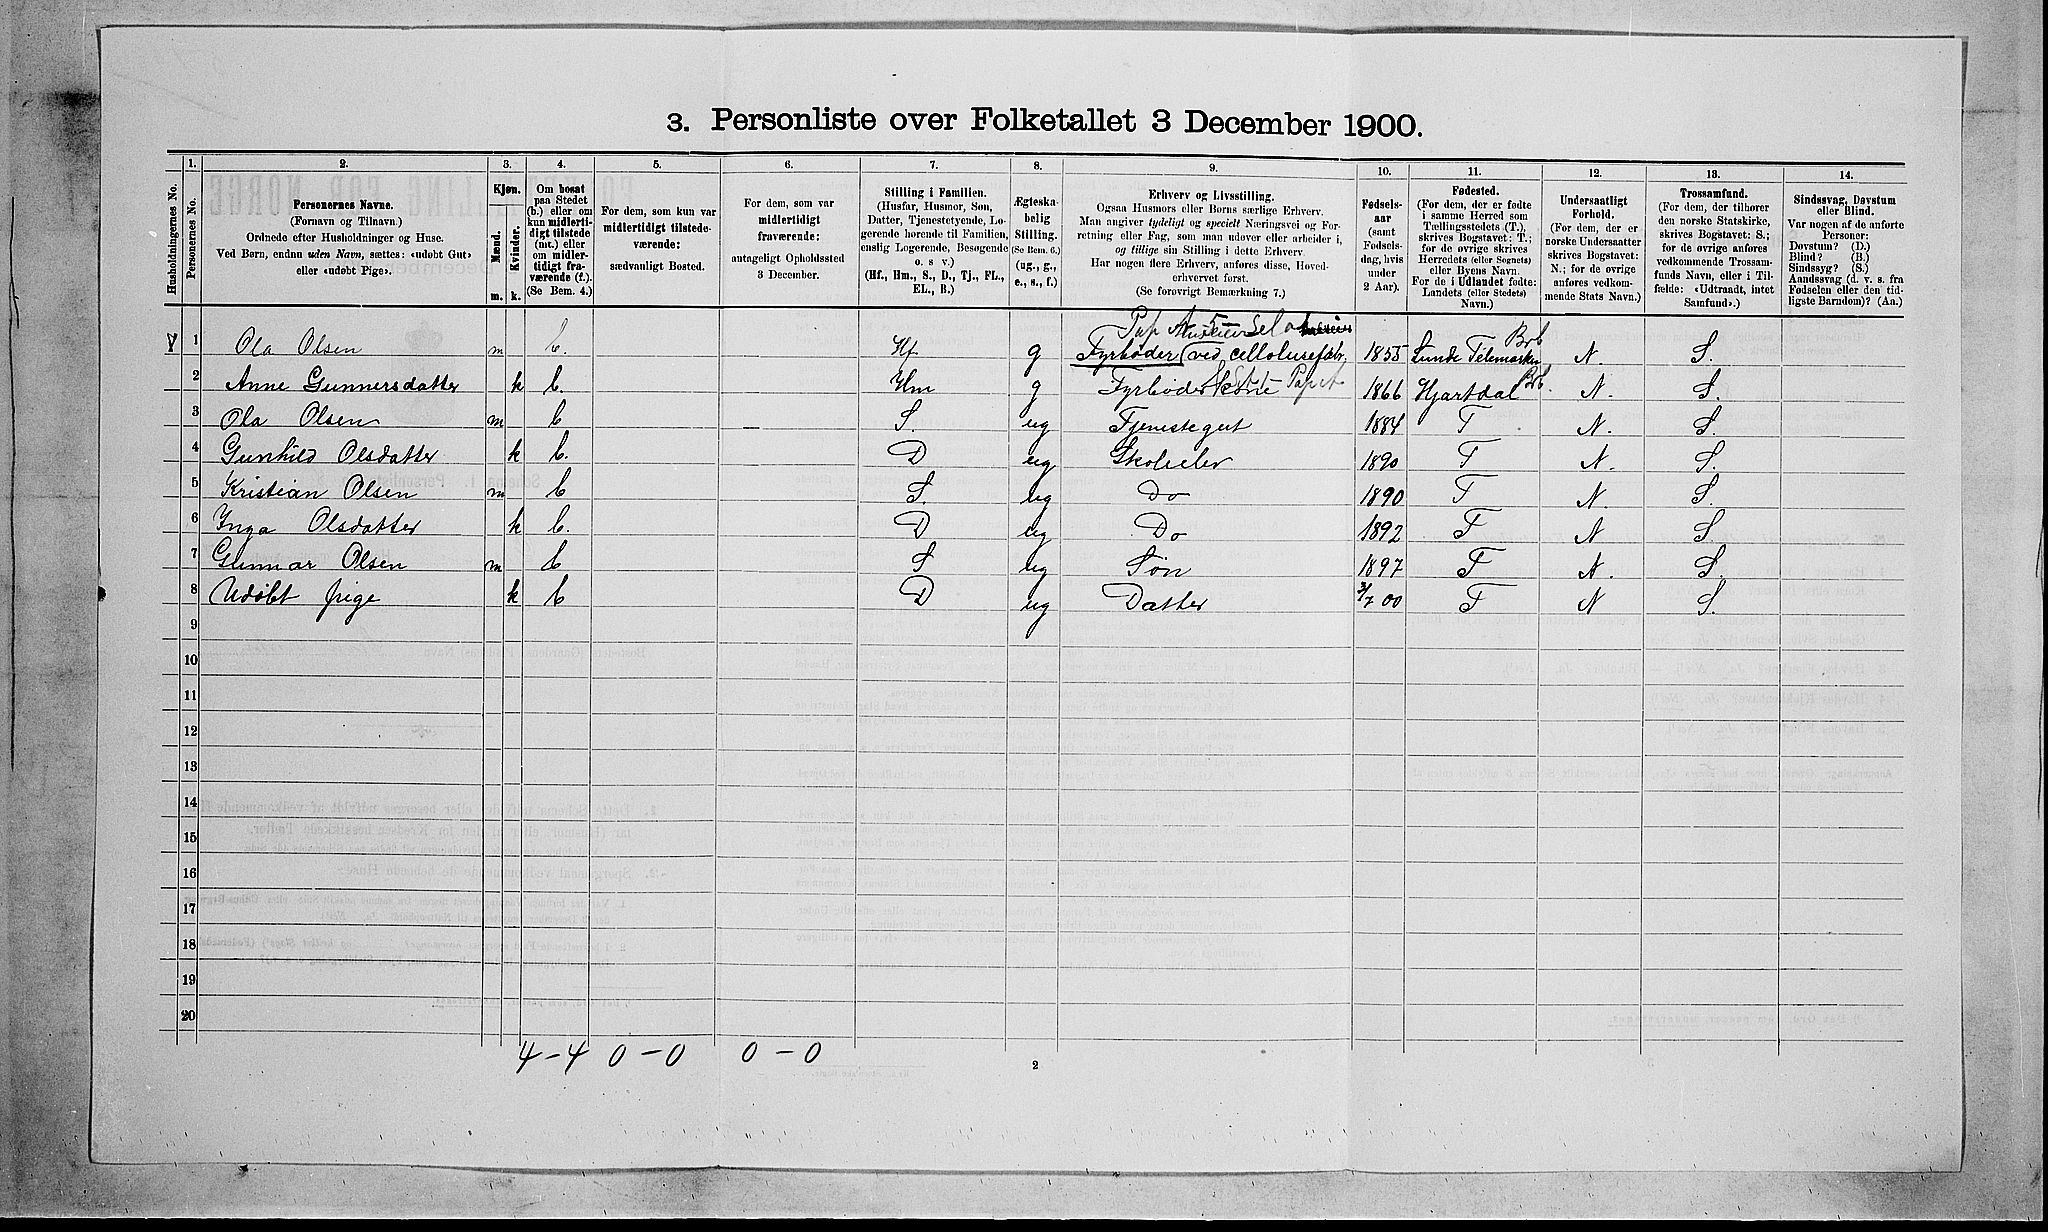 3. Personliste over Folketallet 3 December 1900.
Husholdningernes No.
1. Personernes No.
2. Personernes Navne.
(Fornavn og Tilnavn.)
Ordnede efter Husholdninger og Huse.
Ved Børn, endnu uden Navn, sættes: «udøbt Gut»
eller «udøbt Pige».
3. Kjøn.
Mænd. Kvinder.
m. k.
4. Om bosat
paa Stedet
(b.) eller om
kun midlerti-
digt tilstede
(mt.) eller
om midler-
tidigt fra-
værende (f.)
(Se Bem. 4.)
5.
For dem, som kun var
midlertidigt tilstede-
værende:
sædvanligt Bosted.
6.
For dem, som var
midlertidigt
fraværende:
antageligt Opholdssted
3 December.
7.
Stilling i Familien.
(Husfar, Husmor, Søn,
Datter, Tjenestetyende, Lo-
gerende hørende til Familien,
enslig Logerende, Besøgende
o. s. v.)
(Hf., Hm., S., D., Tj., FL.,
EL., B.)
8.
Ægteska-
belig
Stilling.
(Se Bem. 6.)
(ug., g.,
e., s., f.)
9.
Erhverv og Livsstilling.
Ogsaa Husmors eller Børns særlige Erhverv.
Man angiver tydeligt og specielt Næringsvei og For-
retning eller Fag, som man udøver eller arbeider i,
og tillige sin Stilling i dette Erhverv.
Har nogen flere Erhverv, anføres disse, Hoved-
erhvervet først.
(Se forøvrigt Bemærkning 7.)
10.
Fødsels-
aar
(samt
Fødsels-
dag, hvis
under
2 Aar).
11.
Fødested.
(For dem, der er fødte
i samme Herred som
Tællingsstedets (T.),
skrives Bogstavet: T.;
for de øvrige skrives
Herredets (eller Sognets)
eller Byens Navn.
For de i Udlandet fødte:
Landets (eller Stedets)
Navn.)
12.
Undersaatligt
Forhold.
(For dem, der er
norske Undersaatter
skrives Bogstavet:
N.; for de øvrige
anføres vedkom-
mende Stats Navn.)
13.
Trossamfund.
(For dem, der tilhører
den norske Statskirke,
skrives Bogstavet: S.;
for de øvrige anføres
vedkommende Trossam-
funds Navn, eller i Til-
fælde: «Udtraadt, intet
Samfund».)
14.
Sindssvag, Døvstum
eller Blind.
Var nogen af de anførte
Personer:
Døvstum? (D.)
Blind? (B.)
Sindssyg? (S.)
Aandssvag (d. v. s. fra
Fødselen eller den tid-
ligste Barndom)? (Aa.)
1 Ola Olsen m b. Hf g Fyrbøder (ved cellolusefabr. 1855 Lunde Telemarken Brb N S.
2 Anne Gunnersdatter k b. Hm g Fyrbøderskone 1866 Hjartdal Brb. N. S.
3 Ola Olsen m b S. ug Tjenestegut 1884 T N. S.
4 Gunhild Olsdatter k b. D ug Skoleelev 1890 T N. S.
5 Kristian Olsen m b S. ug Do 1890 T N. S.
6 Inga Olsdatter k b. D ug Do 1892 T N S.
7 Gunnar Olsen m b S ug Søn 1897 T N. S.
8 Udøbt pige k b D ug Datter 3/7 00 T N S.
9
10
11
12
13
14
15
16
17
18
19
20
4-4 0-0 0-0
2